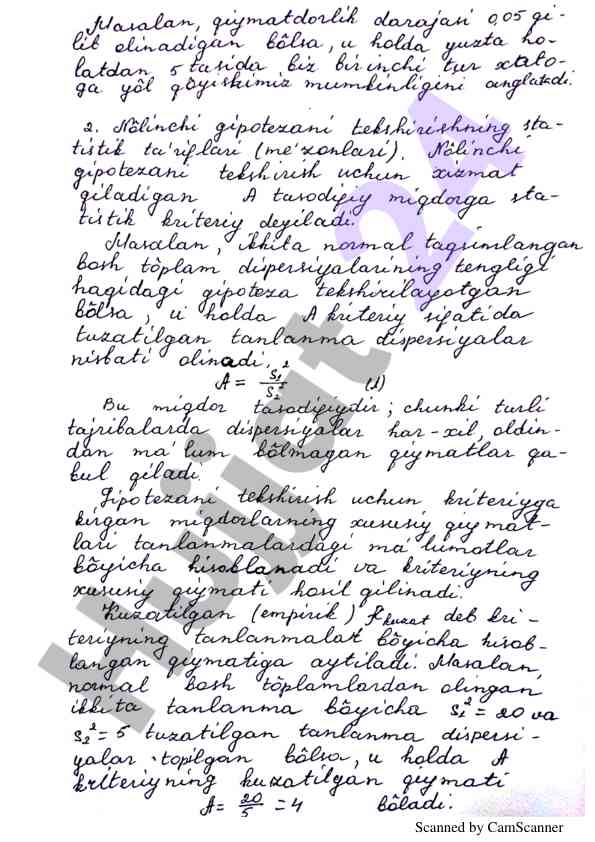 Masalan, qiymatdorlik darajasi 0,05 qi-
lib olinadigan bôlsa, u holda yuzta ho-
latdan 5 tasida biz birinchi tur xato-
ga yôl qôyishimiz mumkinligini anglatadi.
2. Nôlinchi gipotezani tekshirishning sta-
tistik ta'riflari (me'zonlari). Nôlinchi
gipotezani tekshirish uchun xizmat
qiladigan A tasodifiy miqdorga sta-
tistik kriteriy deyiladi.
Masalan, ikkita normal taqsimlangan
bosh tôplam dispersiyalarining tengligi
haqidagi gipoteza tekshirilayotgan
bôlsa, u holda A kriteriy sifatida
tuzatilgan tanlanma dispersiyalar
nisbati olinadi.
A = S₁²/S₂² (1)
Bu miqdor tasodifiydir; chunki turli
tajribalarda dispersiyalar har-xil, oldin-
dan ma'lum bôlmagan qiymatlar qa-
bul qiladi.
Gipotezani tekshirish uchun kriteriyga
kirgan miqdorlarning xususiy qiymat-
lari tanlanmalardagi ma'lumotlar
bôyicha hisoblanadi va kriteriyning
xususiy qiymati hosil qilinadi.
Kuzatilgan (empirik) kuzat deb kri-
teriyning tanlanmalar bôyicha hisob-
langan qiymatiga aytiladi. Masalan,
normal bosh tôplamlardan olingan
ikkita tanlanma bôyicha S₁² = 20 va
S₂² = 5 tuzatilgan tanlanma dispersi-
yalar topilgan bôlsa, u holda A
kriteriyning kuzatilgan qiymati
A = 20/5 = 4 bôladi.
Hujjat 24
Scanned by CamScanner